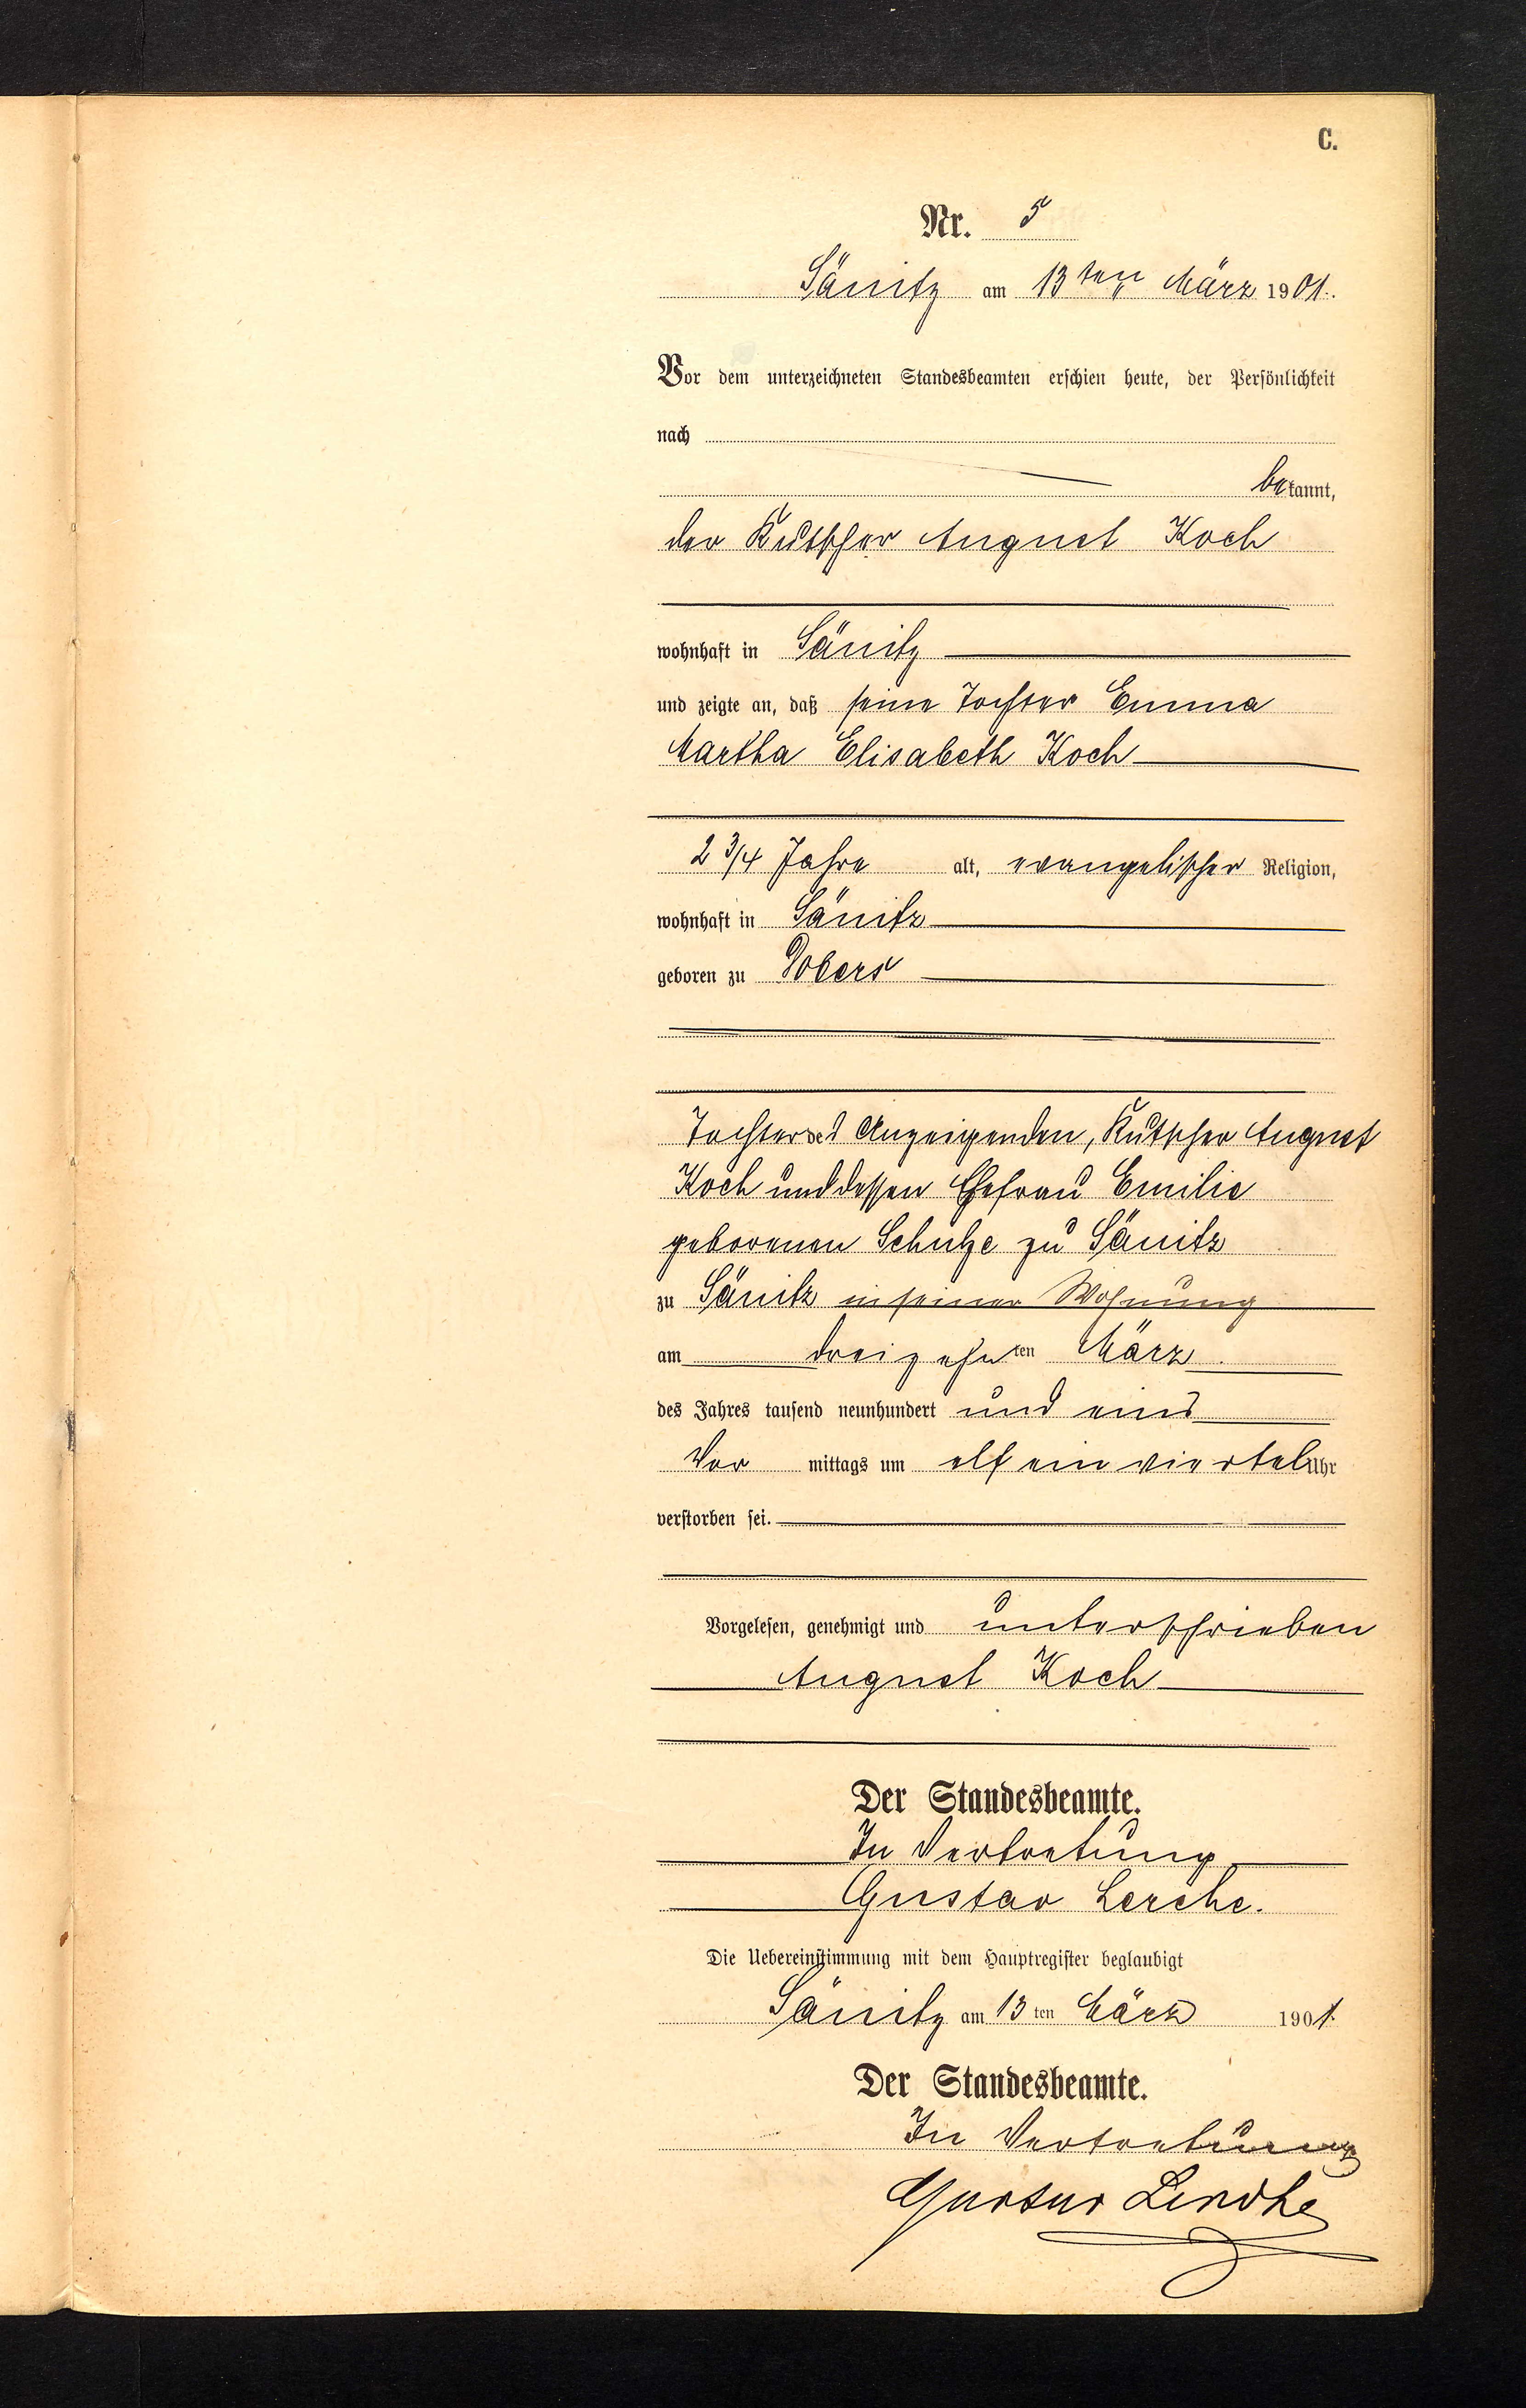 C.
Nr. 5
Sänitz am 13ten März 1901.
Vor dem unterzeichneten Standesbeamten erschien heute, der Persönlichkeit
nach
bekannt,
der Kutscher August Koch
wohnhaft in Sänitz
und zeigte an, daß seine Tochter Emma
Martha Elisabeth Koch
2 3/4 Jahre alt, evangelischer Religion,
wohnhaft in Sänitz
geboren zu Dobers
Tochter des Anzeigenden, Kutscher August
Koch und dessen Ehefrau Emilie
geborenen Schulze zu Sänitz
zu Sänitz in seiner Wohnung
am dreizehnten März
des Jahres tausend neunhundert und eins
Vor mittags um elf ein viertel Uhr
verstorben sei.
Vorgelesen, genehmigt und unterschrieben
August Koch
Der Standesbeamte.
In Vertretung
Gustav Lerche.
Die Uebereinstimmung mit dem Hauptregister beglaubigt
Sänitz am 13ten März 1901.
Der Standesbeamte.
In Vertretung
Gustav Lerche